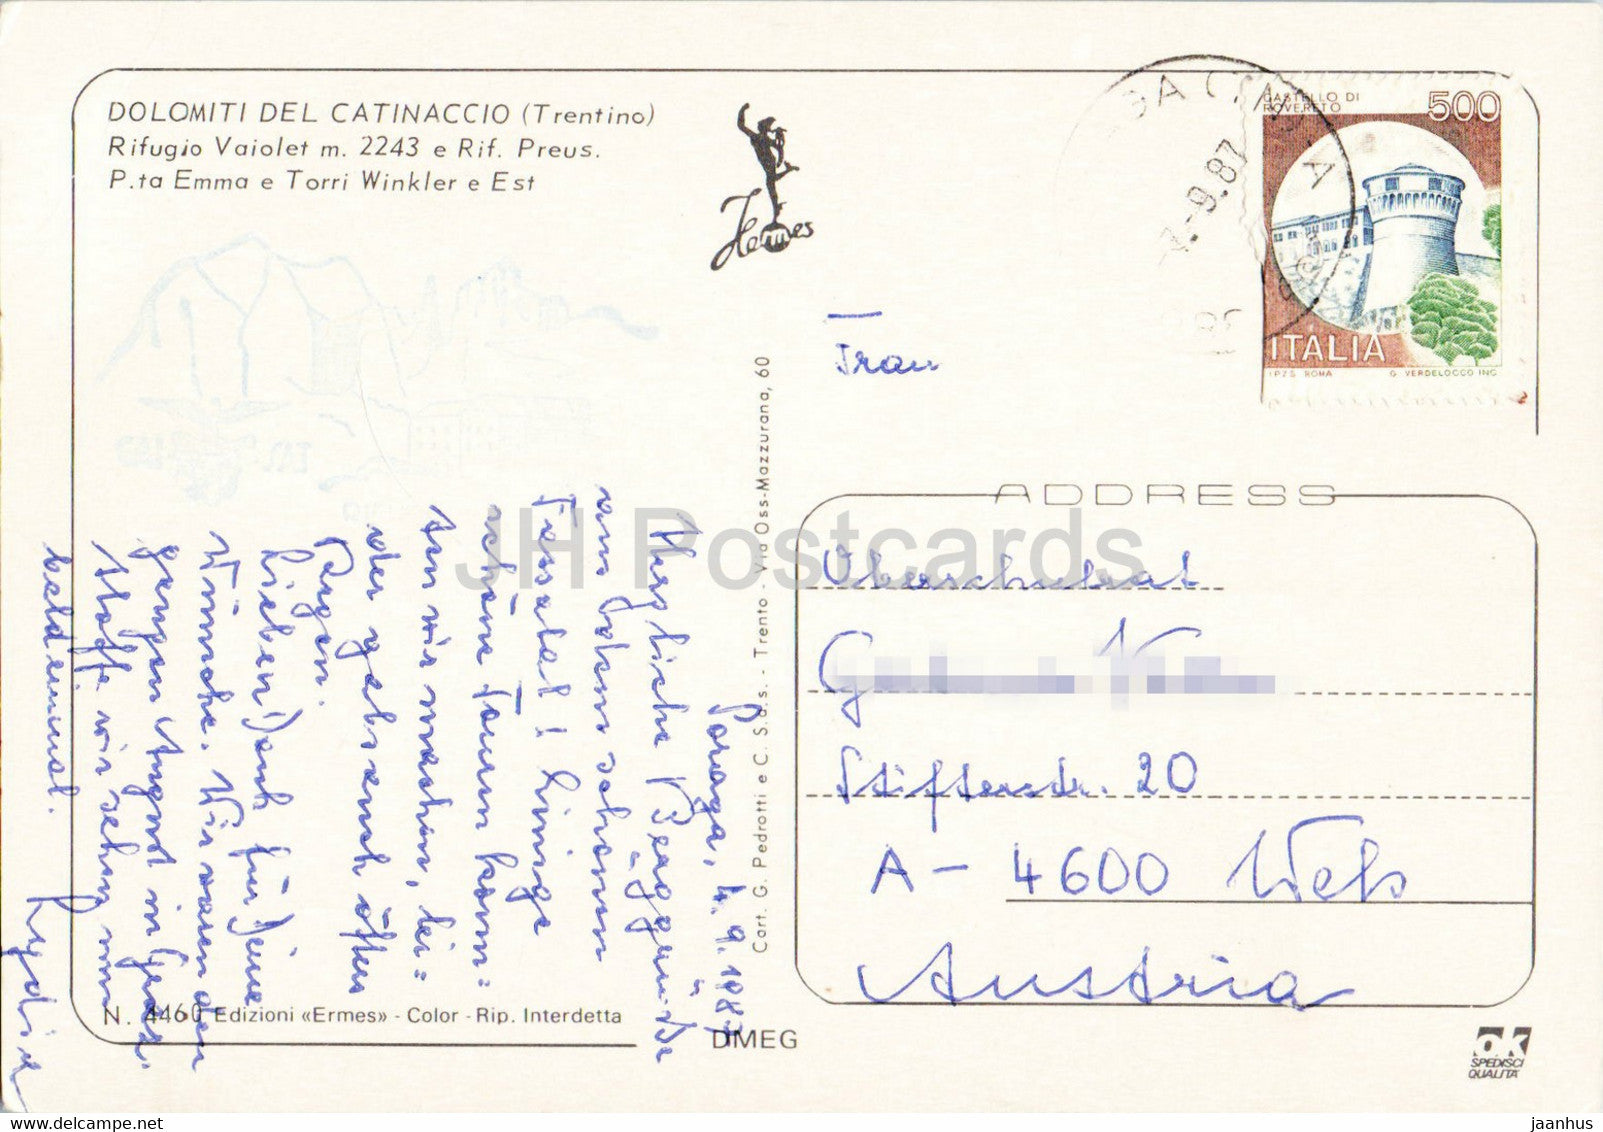 DOLOMITI DEL CATINACCIO (Trentino)
Rifugio Vaiolet m. 2243 e Rif. Preus.
P.ta Emma e Torri Winkler e Est
Hermes
CASTELLO DI
ROVERETO
500
ITALIA
I.P.Z.S. ROMA
G. VERDELOCCO INC.
-9.87
Frau
ADDRESS
Oberschulrat
Stifterstr. 20
A - 4600 Wels
Austria
4.9.1987
Herzliche Berggrüße
aus dem schönen
Fassatal! Einige
schöne Touren konn=
ten wir machen, lei=
der gab's auch öfter
Regen.
Lieben Dank für Deine
Wünsche. Wir waren den
ganzen August in
Hoffe wir sehen uns
bald einmal.
Cart. G. Pedrotti e C. S.a.s. - Trento - Via Oss-Mazzurana, 60
N. 4460 Edizioni «Ermes» - Color - Rip. Interdetta
DMEG
ok
SPEDISCI
QUALITA'
JH Postcards
delcampe.net
jaanhus